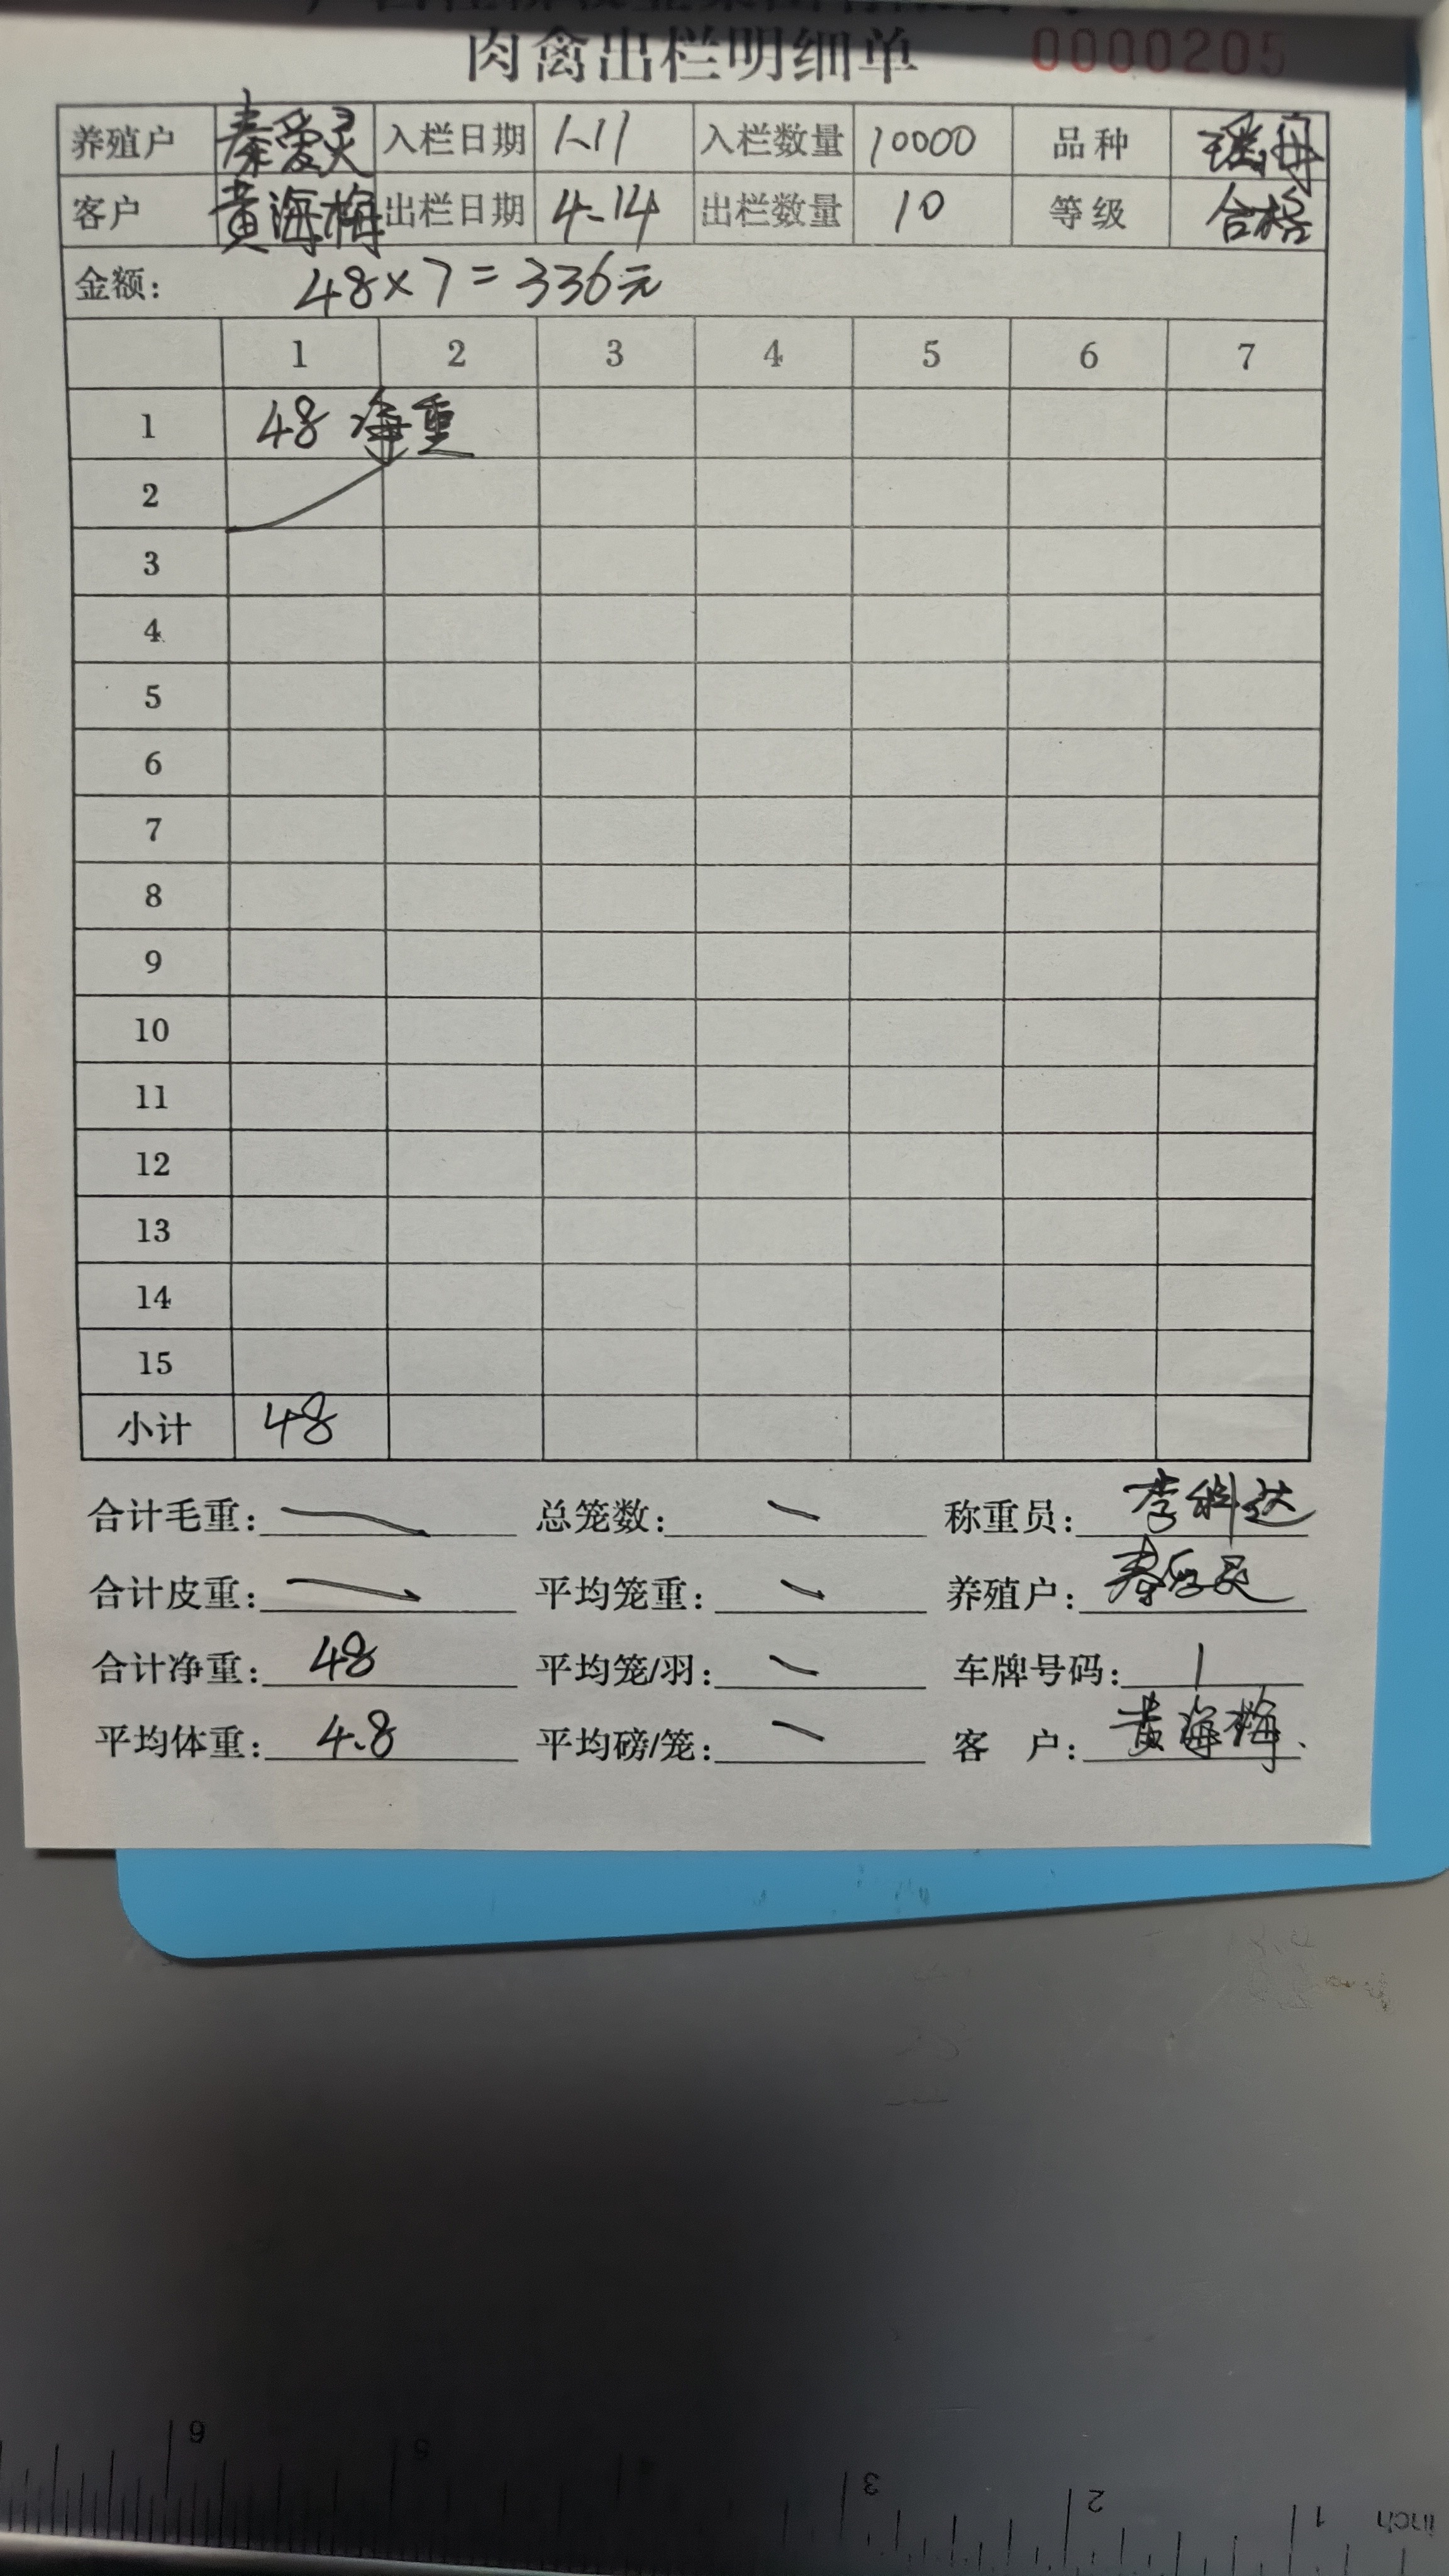 肉禽出栏明细单 0000205
养殖户 秦爱灵 入栏日期 1-11 入栏数量 10000 品种 瑶丹
客户 黄海梅 出栏日期 4-14 出栏数量 10 等级 合格
金额： 48×7=336元
1 2 3 4 5 6 7
1 48 净重
2
3
4
5
6
7
8
9
10
11
12
13
14
15
小计 48
合计毛重： 总笼数： 称重员： 李科达
合计皮重： 平均笼重： 养殖户： 秦爱灵
合计净重： 48 平均笼/羽： 车牌号码：
平均体重： 4.8 平均磅/笼： 客 户： 黄海梅
6 5 3 2 1 inch